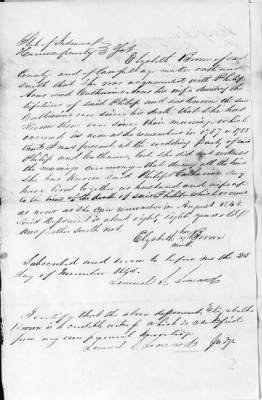 State of Indiana
Harrison County } Sct
Elizabeth Brown of said
County and of lawful age maketh oath and
saith that she was acquainted with Philip
and Catharine his wife during the
lifetime of said Philip and has known the said
Catharine ever since his death that she has
known them ever since their marriage which
occured as near as she remembers in 1787 or 1788
that I was present at the wedding party of said
Philip and Catharine but she did not witness
the marriage ceremony that during all the time
she has known said Philip & Catharine they
have lived together as husband and wife up
to the death of said Philip which occured
as near as she can remember in August 184
said deponent is about eighty eight years old
and further saith not.
Elizabeth Brown
mark
Subscribed and sworn to before me the
day of November 184
Lemuel S.
I certify that the above deponent, Elizabeth
Brown is a credible witness which is certified
from my own personal knowledge
Lemuel S.